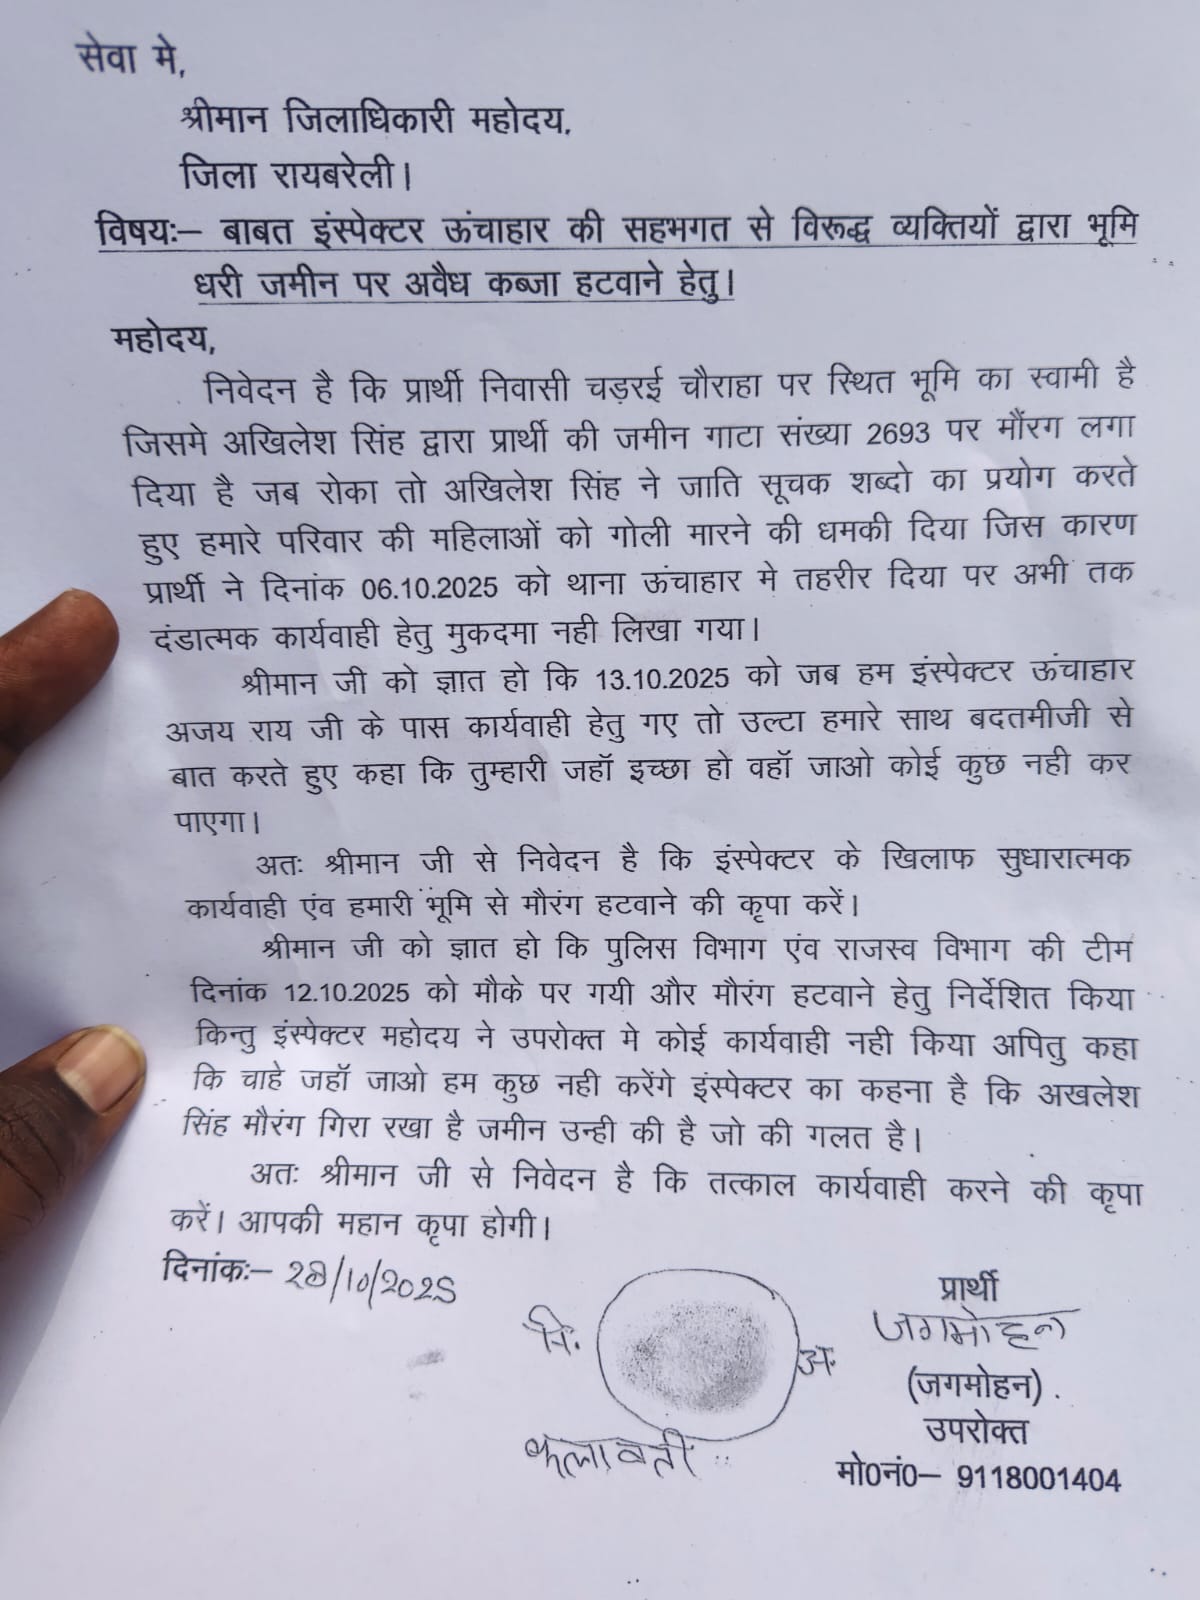 सेवा मे,
श्रीमान जिलाधिकारी महोदय,
जिला रायबरेली।
विषयः– बाबत इंस्पेक्टर ऊंचाहार की सहभगत से विरूद्ध व्यक्तियों द्वारा भूमि
धरी जमीन पर अवैध कब्जा हटवाने हेतु।
महोदय,
निवेदन है कि प्रार्थी निवासी चड़रई चौराहा पर स्थित भूमि का स्वामी है
जिसमे अखिलेश सिंह द्वारा प्रार्थी की जमीन गाटा संख्या 2693 पर मौंरग लगा
दिया है जब रोका तो अखिलेश सिंह ने जाति सूचक शब्दो का प्रयोग करते
हुए हमारे परिवार की महिलाओं को गोली मारने की धमकी दिया जिस कारण
प्रार्थी ने दिनांक 06.10.2025 को थाना ऊंचाहार मे तहरीर दिया पर अभी तक
दंडात्मक कार्यवाही हेतु मुकदमा नही लिखा गया।
श्रीमान जी को ज्ञात हो कि 13.10.2025 को जब हम इंस्पेक्टर ऊंचाहार
अजय राय जी के पास कार्यवाही हेतु गए तो उल्टा हमारे साथ बदतमीजी से
बात करते हुए कहा कि तुम्हारी जहॉ इच्छा हो वहॉ जाओ कोई कुछ नही कर
पाएगा।
अतः श्रीमान जी से निवेदन है कि इंस्पेक्टर के खिलाफ सुधारात्मक
कार्यवाही एंव हमारी भूमि से मौरंग हटवाने की कृपा करें।
श्रीमान जी को ज्ञात हो कि पुलिस विभाग एंव राजस्व विभाग की टीम
दिनांक 12.10.2025 को मौके पर गयी और मौरंग हटवाने हेतु निर्देशित किया
किन्तु इंस्पेक्टर महोदय ने उपरोक्त मे कोई कार्यवाही नही किया अपितु कहा
कि चाहे जहॉ जाओ हम कुछ नही करेंगे इंस्पेक्टर का कहना है कि अखलेश
सिंह मौरंग गिरा रखा है जमीन उन्ही की है जो की गलत है।
अतः श्रीमान जी से निवेदन है कि तत्काल कार्यवाही करने की कृपा
करें। आपकी महान कृपा होगी।
दिनांकः– 28/10/2025
प्रार्थी
नि. अ.
जगमोहन
(जगमोहन).
कलावती
उपरोक्त
मो0नं0– 9118001404